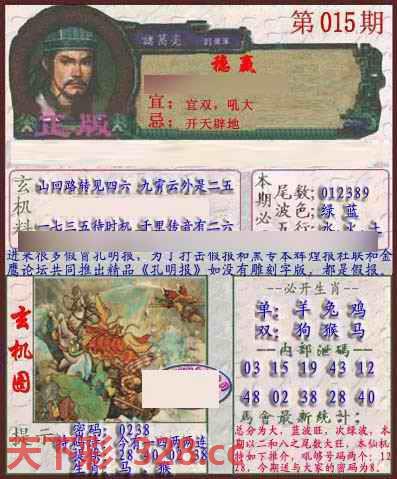 第015期
諸葛亮
稳赢
宜：宜双，吼大
忌：开天辟地
正版
玄机料
山回路转见四六 九霄云外是二五
一七三五待时机 千里传音有二六
本期必
尾数：012389
波色：绿 蓝
五行：水 火 土
进来很多假冒孔明报，为了打击假报和黑专本辉煌报社联和金
鹰论坛共同推出精品《孔明报》如没有雕刻字版，都是假报。
玄机图
--必开生肖--
单：羊 兔 鸡
双：狗 猴 马
--内部泄码--
03 15 19 43 12
48 02 38 28 40
马會最新統计：
总分为大，蓝波旺，次绿波，本
期以二和八之尾数大旺，本仙机
特如下推介，吼够号码两个：12
28，今期送与大家的密码为8。
提示
密码：0238
今有二四两两连
28 40 02 38
天下彩